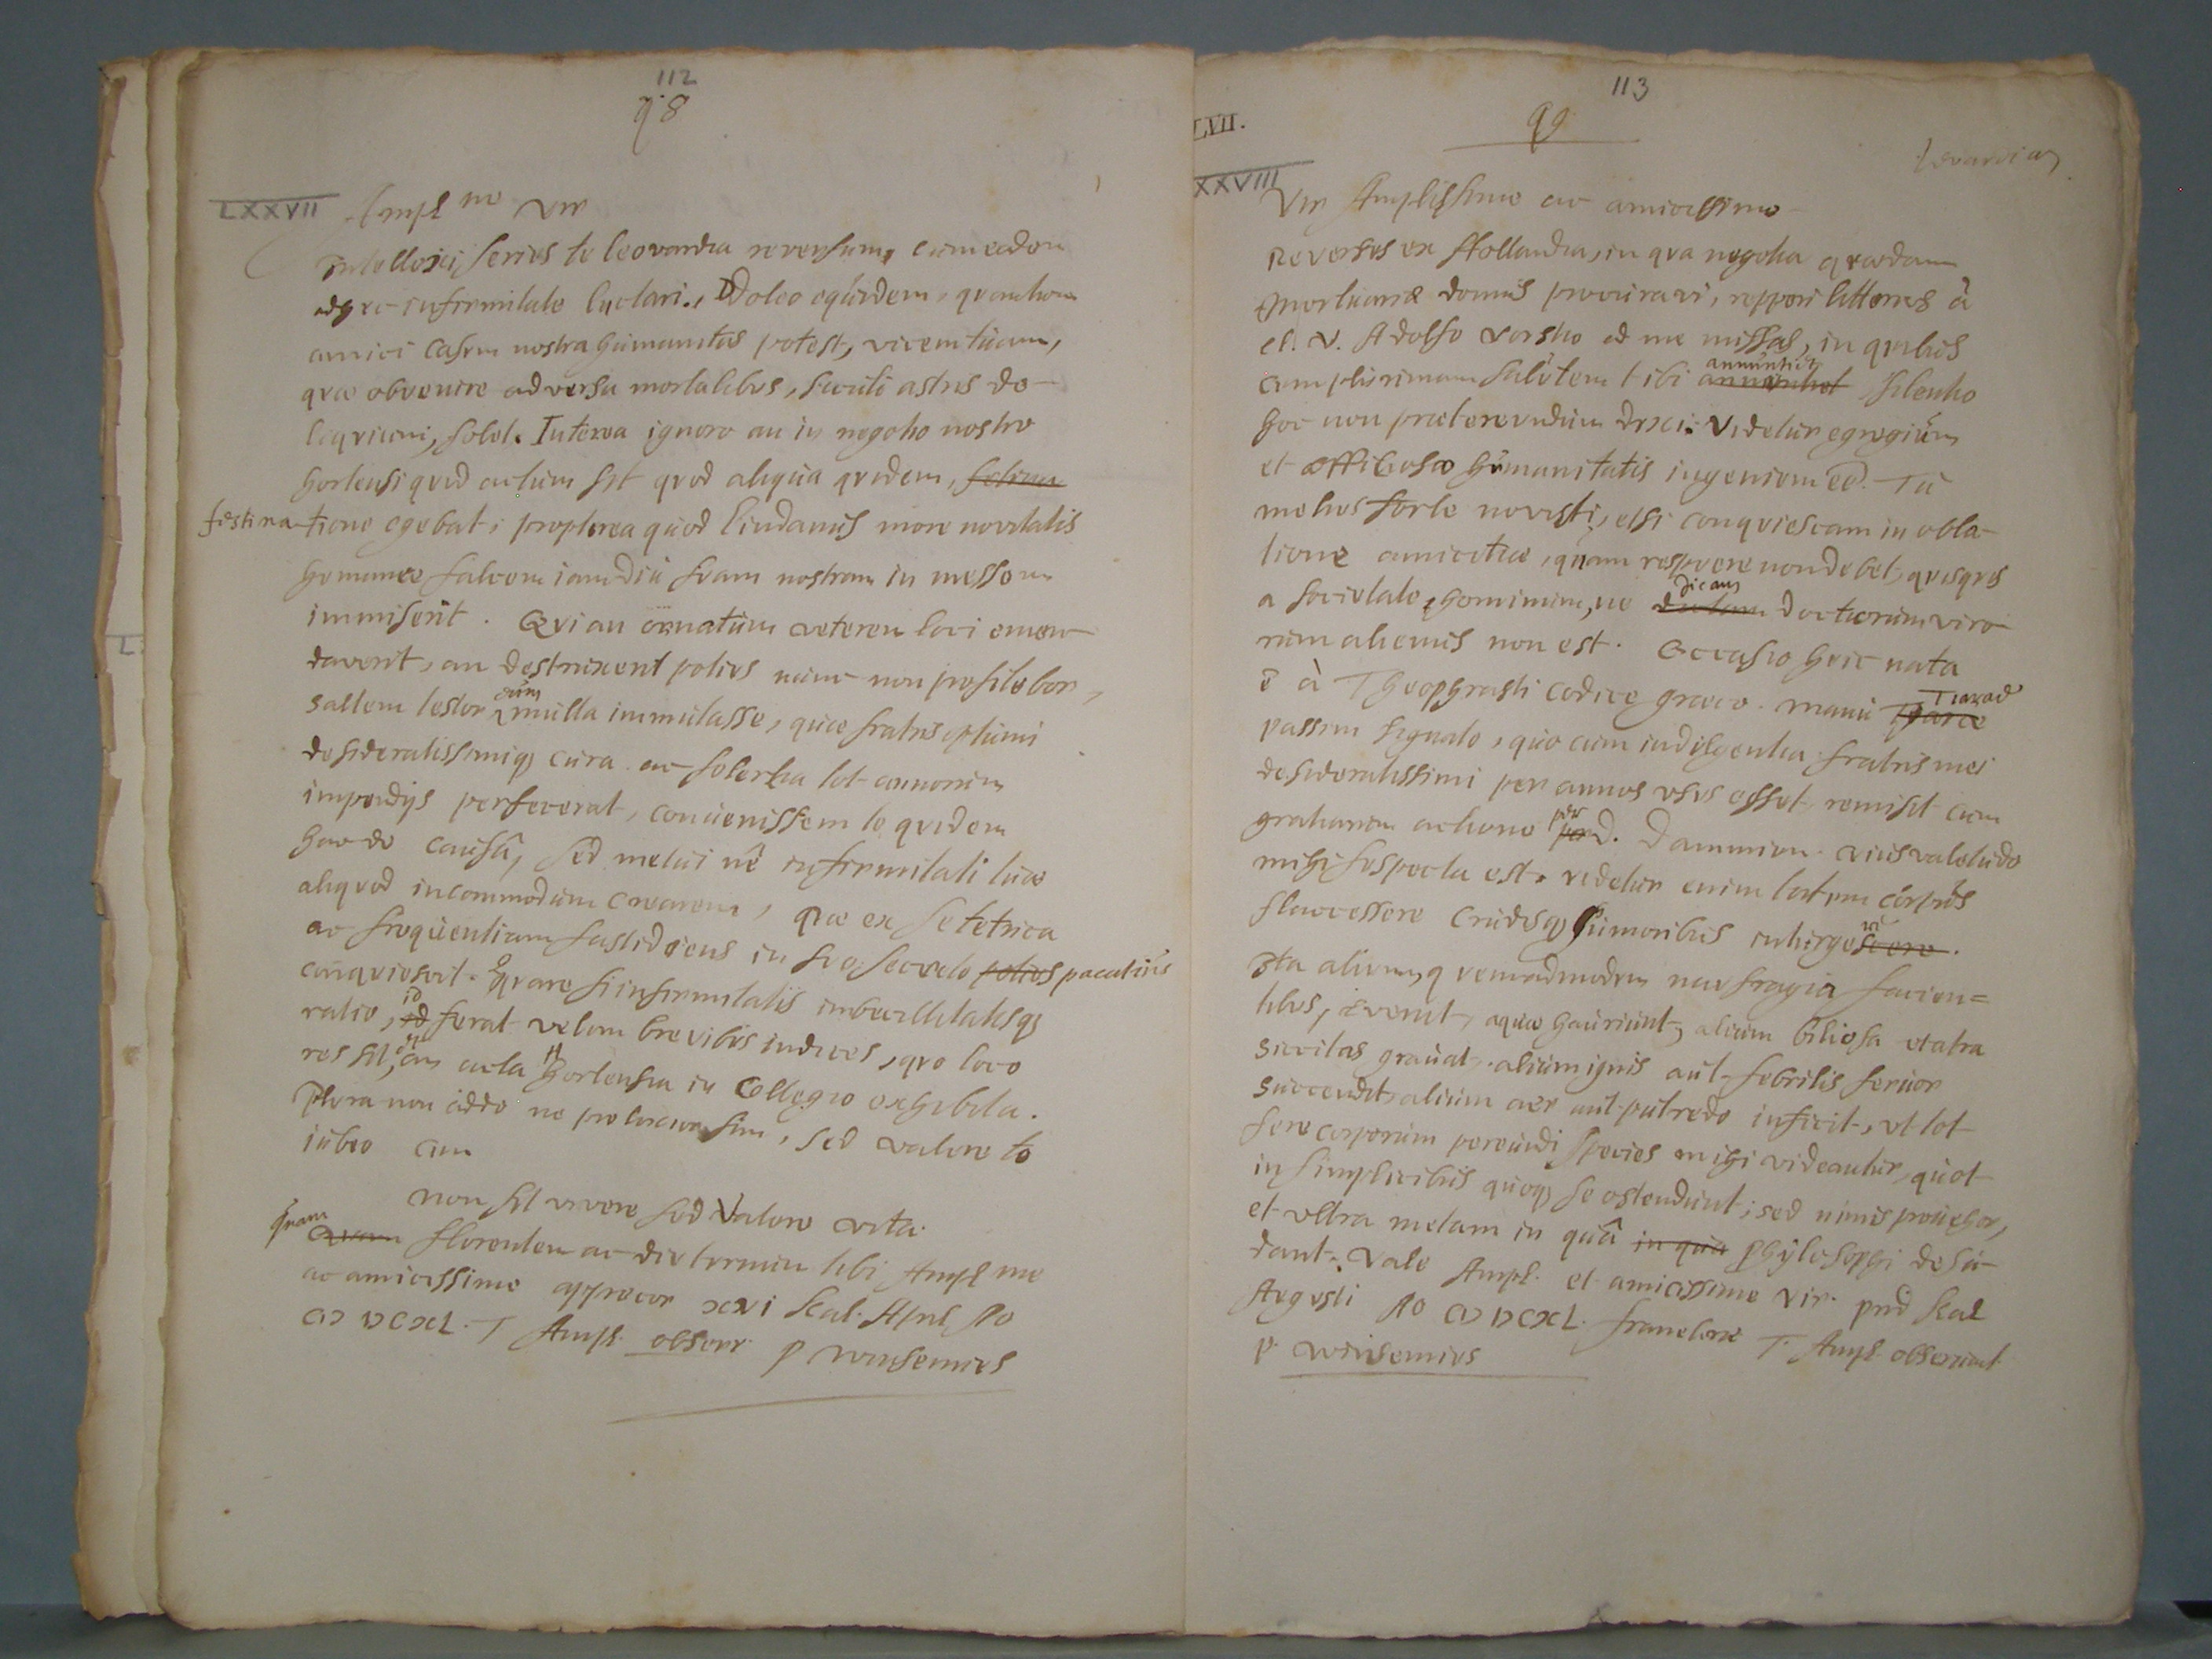 112
98
LXXVII Ampl me Vir
Intellexi serius te Leovardia reversum, cum eadem
adhuc infirmitate luctari., Doleo equidem, quantum
amici casum nostra humanitas potest, vicem tuam,
quae obvenire adversa mortalibus, sicuti astris de-
liquium, solet. Interea ignoro an in negotio nostro
hortensi quid actum sit quod aliqua quidem, festina
festina-tione egebat, propterea quod Lindanus more novitatis
humanae falcem iamdiu suam nostram in messem
immiserit. Qui an ornatum veterem loci emen-
daverit, an destruxerit potius nunc non profitebor,
saltem testor eum multa immutasse, quae fratris optimi
desideratissimiq cura ac solertia tot annorum
impendijs perfecerat, convenissem te quidem
hac de causâ, sed metui nê infirmitati tuae
aliquod incommodum crearem, quae ex se tetrica
ac frequentiam fastidiens in suo secreto potius pacatius
conquiescit. Quare si infirmitatis imbecillitatisq
ratio, id id ferat velim brevibus indices, quo loco
res sit, an acta Hortensia in Collegio exhibita.
Plura non addo ne prolixior sim, sed valere te
iubeo cum
non sit vivere sed Valere vita.
quam Quam florentem ac diuturnam tibi Ampl me
ac amicissime apprecor xvi Kal. April Ao
CIↃ IↃCXL. T Ampl. observ. P Winsemius
113
99
LVII.
Levardiam
XXVIII
Vir Amplissime ac amicissime
Reversus ex Hollandia, in qua negotia quaedam
mortuariae domus procuravi, repperi litteras à
cl. V. Adolfo Vorstio ad me missas, in quibus
cum plurimam salutem tibi annuntiet annuntiet silentio
hoc non praetereundum duxi. Videtur egregium
et officiosae humanitatis ingenium eē. Tu
melius forte novisti, etsi conquiescam in obla-
tione amicitiae, quam respuere non debet, quisquis
a societate hominum, ne dicam doctiorum viro-
rum alienus non est. Occasio huic nata
ē à Theophrasti codice graeco. manu
passim signato, quo cum indulgentia fratris mei
desideratissimi per annos usus esset, remisit cum
gratiarum actione per per D. Dammium. cuius valetudo
mihi suspecta est. videtur enim totum corpus
flaccessere crudisq humoribus
Ita alium, quemadmodum naufragia facien-
tibus, evenit, aquae hauriunt, alium biliosa et atra
siccitas gravat. alium ignis aut febrilis fervor
succendit, alium aer aut putredo inficit, ut tot
fere corporum pereundi species mihi videantur, quot
in simplicibus quoq se ostendunt; sed nimis provehor,
et ultra metam in quâ in qua Phylosophi desu-
dant. Vale Ampl. et amicissime Vir. prid Kal
Augusti Ao CIↃ IↃCXL. Franekerae T. Ampl. observant
P. Winsemius